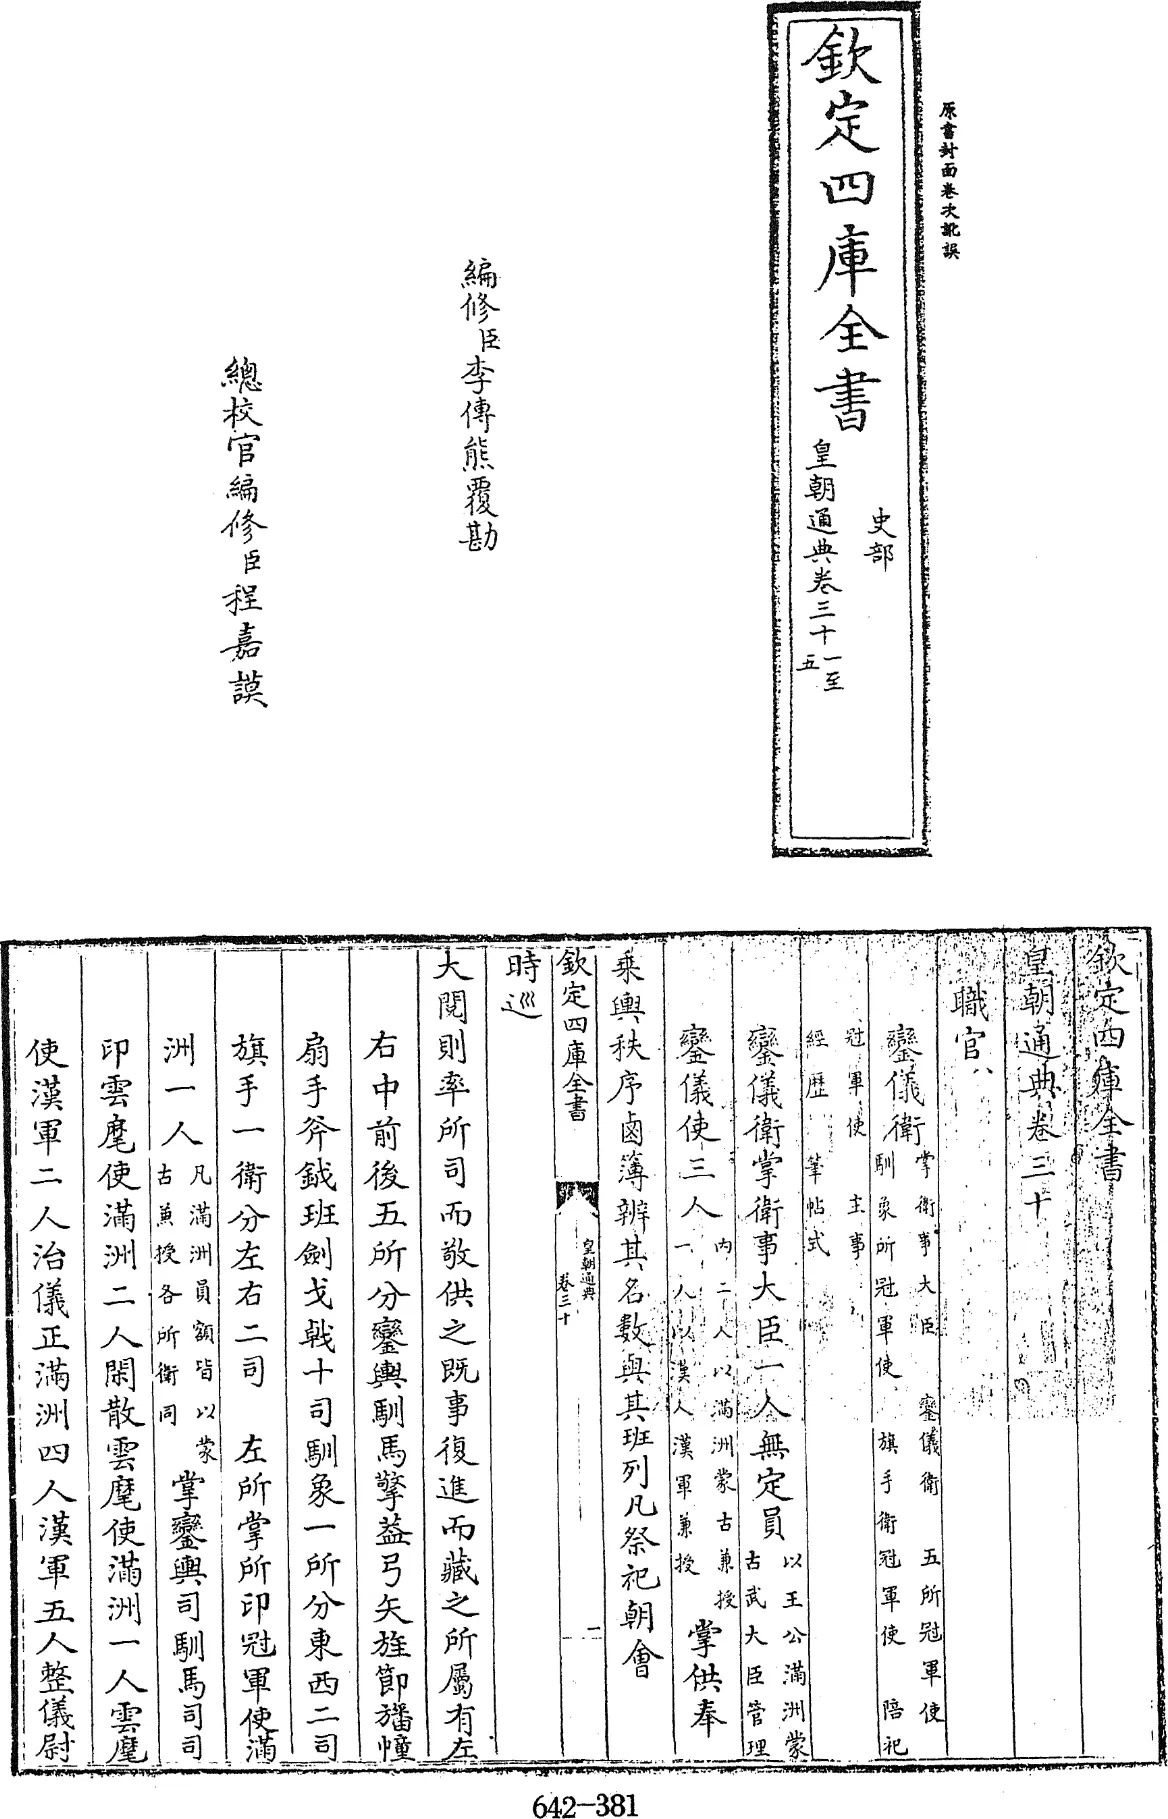 原書封面卷次訛誤
欽定四庫全書
史部
皇朝通典卷三十一至
五
編修臣李傳熊覆勘
總校官編修臣程嘉謨
欽定四庫全書
皇朝通典卷三十
職官八
鑾儀衛掌衛事大臣 鑾儀衛 五所冠軍使
馴象所冠軍使 旗手衛冠軍使 陪祀
冠軍使 主事
經歷 筆帖式
鑾儀衛掌衛事大臣一人無定員以王公滿洲蒙
古武大臣管理
鑾儀使三人內二人以滿洲蒙古兼授
一人以漢人漢軍兼授掌供奉
乘輿秩序鹵簿辨其名數與其班列凡祭祀朝會
欽定四庫全書
皇朝通典
卷三十
二
時巡
大閱則率所司而敬供之既事復進而藏之所屬有左
右中前後五所分鑾輿馴馬擎葢弓矢旌節旛幢
扇手斧鉞班劍戈戟十司馴象一所分東西二司
旗手一衛分左右二司 左所掌所印冠軍使滿
洲一人凡滿洲員額皆以蒙
古兼授各所衛同掌鑾輿司馴馬司司
印雲麾使滿洲二人閑散雲麾使滿洲一人雲麾
使漢軍二人治儀正滿洲四人漢軍五人整儀尉
642-381